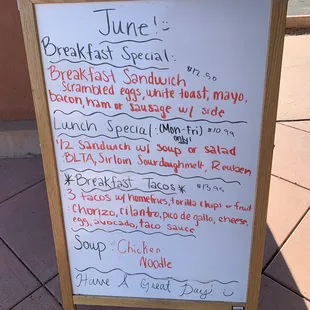 June!
Breakfast Special:
Breakfast Sandwich $12.90
scrambled eggs, white toast, mayo,
bacon, ham or sausage w/ side
Lunch Special: (Mon-Fri) $10.99
only!
1/2 Sandwich w/ soup or salad
BLTA, Sirloin Sourdoughmelt, Reuben
*Breakfast Tacos* $13.95
3 tacos w/ homefries, torilla chips or fruit
Chorizo, cilantro, pico de gallo, cheese,
egg, avocado, taco sauce
Soup: Chicken
Noodle
Have A Great Day!